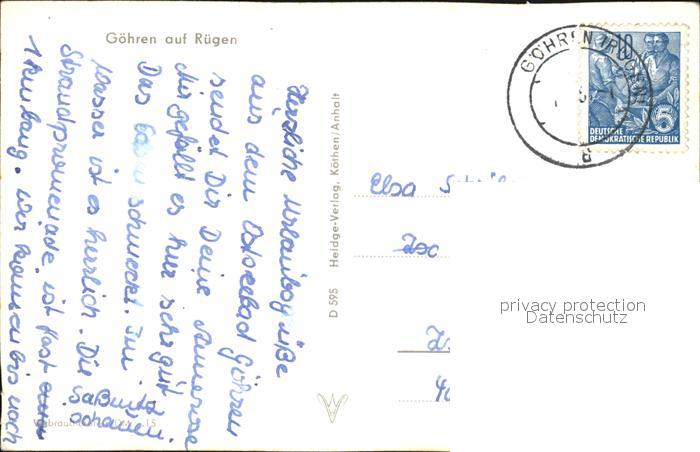 Göhren auf Rügen
Herzliche Urlaubsgrüße
aus dem Ostseebad Göhren
sendet Dir Deine Annerose
Mir gefällt es hier sehr gut
Das Essen schmeckt. Im
Wasser ist es herrlich. Die
Strandpromenade ist fast
1 km lang. Wir können bis nach
Saßnitz
schauen.
D 595 Heldge-Verlag, Köthen/Anhalt
GÖHREN (RÜGEN)
a
10
5
DEUTSCHE
DEMOKRATISCHE REPUBLIK
Elsa
privacy protection
Datenschutz